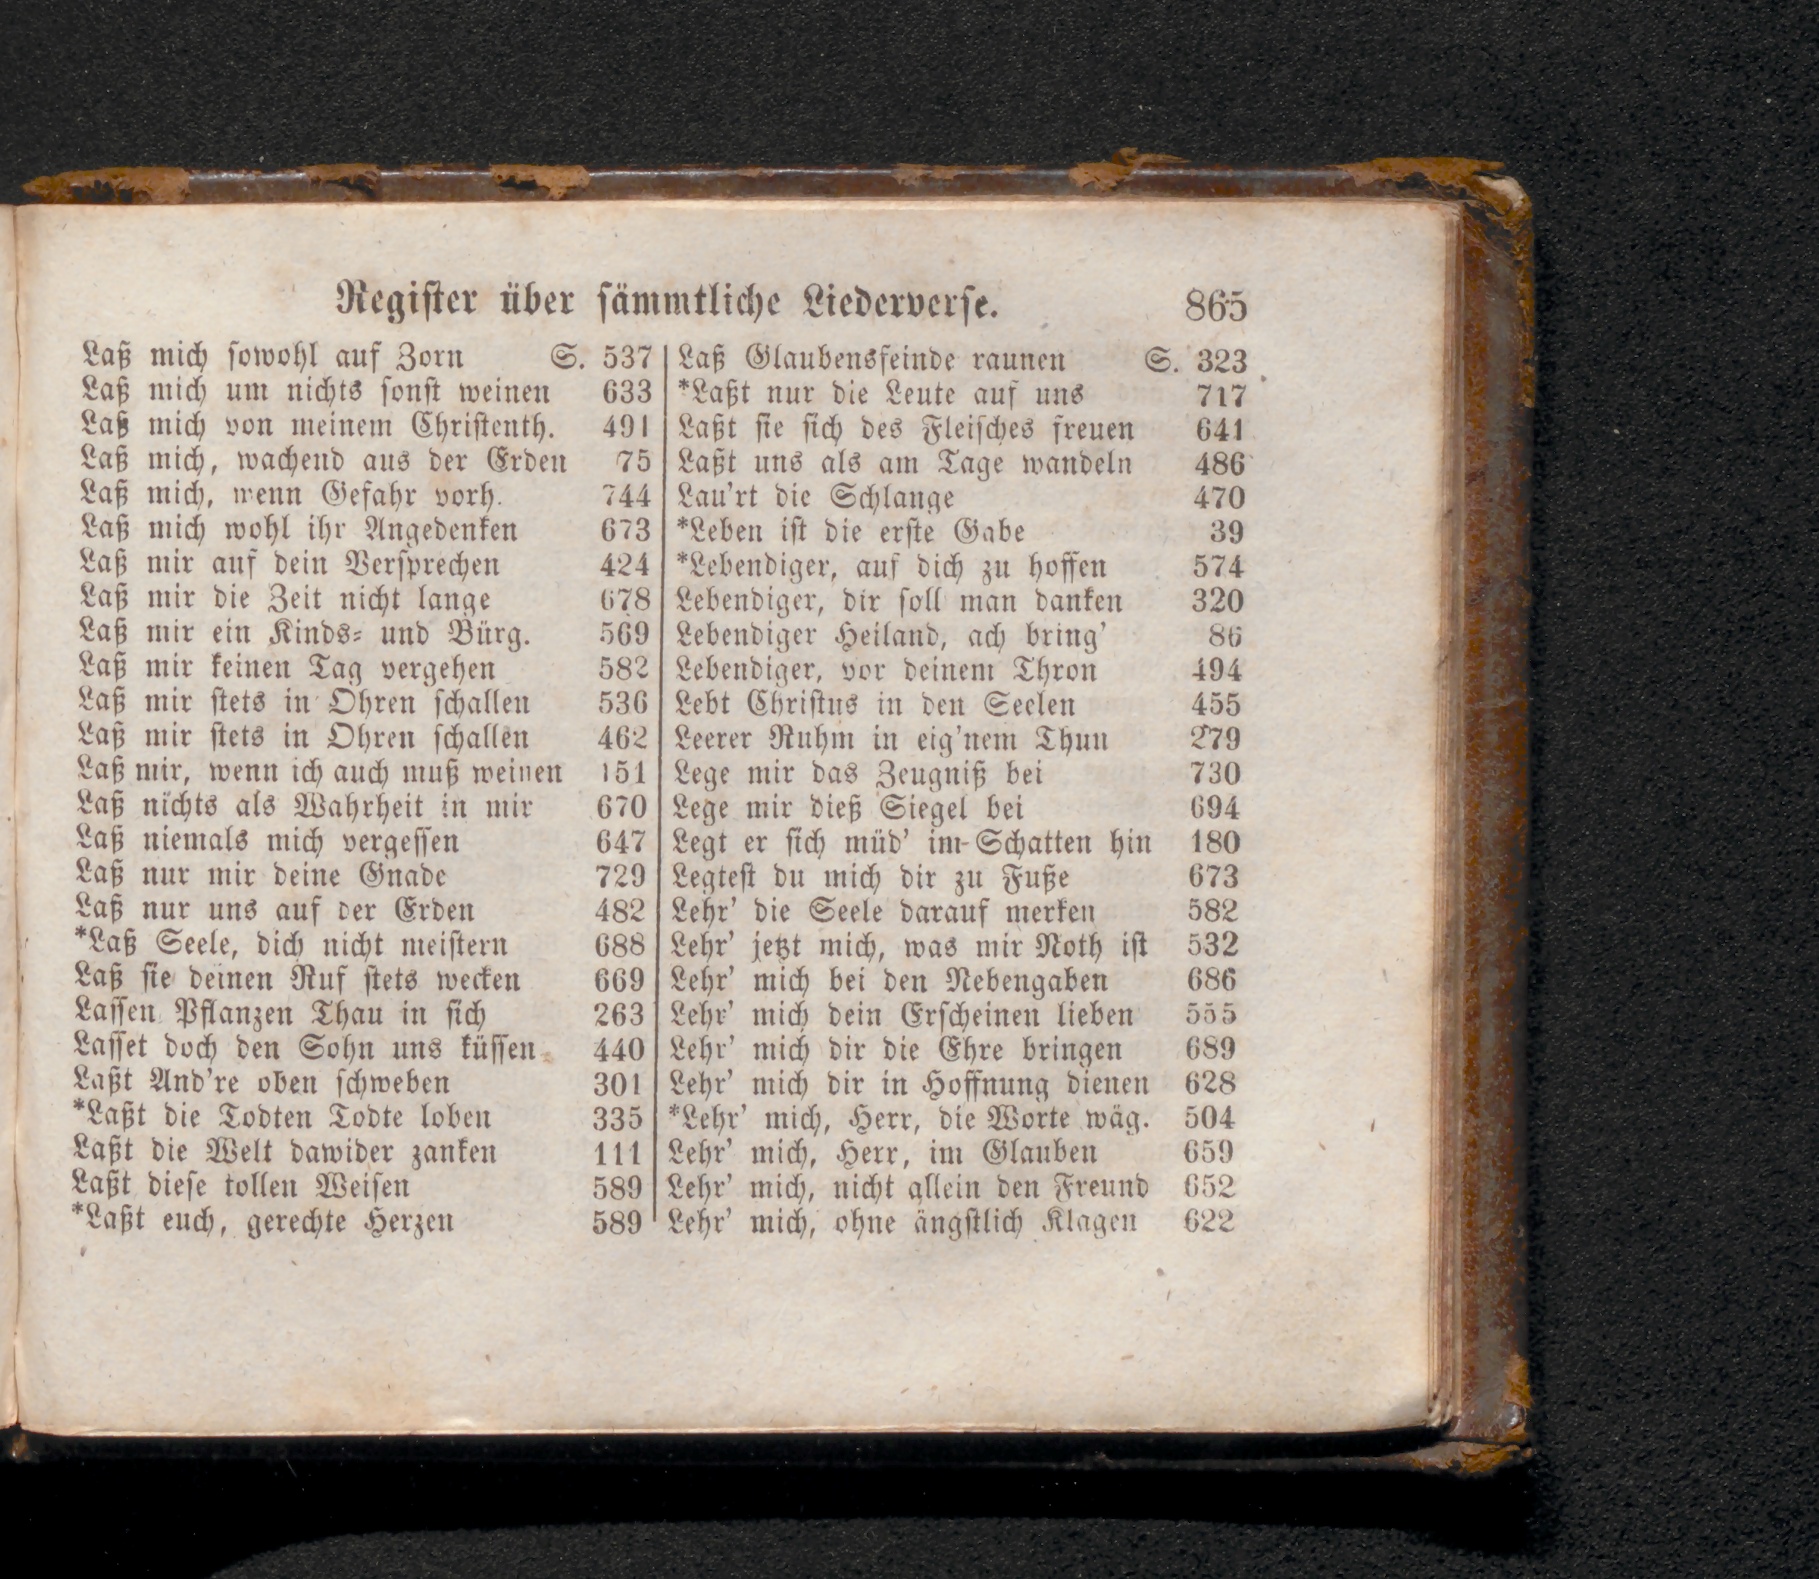 Register über sämmtliche Liederverse. 865
Laß mich sowohl auf Zorn S. 537
Laß mich um nichts sonst weinen 633
Laß mich von meinem Christenth. 491
Laß mich, wachend aus der Erden 75
Laß mich, wenn Gefahr vorh. 744
Laß mich wohl ihr Angedenken 673
Laß mir auf dein Versprechen 424
Laß mir die Zeit nicht lange 678
Laß mir ein Kinds- und Bürg. 569
Laß mir keinen Tag vergehen 582
Laß mir stets in Ohren schallen 536
Laß mir stets in Ohren schallen 462
Laß mir, wenn ich auch muß weinen 151
Laß nichts als Wahrheit in mir 670
Laß niemals mich vergessen 647
Laß nur mir deine Gnade 729
Laß nur uns auf der Erden 482
*Laß Seele, dich nicht meistern 688
Laß sie deinen Ruf stets wecken 669
Lassen Pflanzen Thau in sich 263
Lasset doch den Sohn uns küssen 440
Laßt And're oben schweben 301
*Laßt die Todten Todte loben 335
Laßt die Welt dawider zanken 111
Laßt diese tollen Weisen 589
*Laßt euch, gerechte Herzen 589
Laß Glaubensfeinde raunen S. 323
*Laßt nur die Leute auf uns 717
Laßt sie sich des Fleisches freuen 641
Laßt uns als am Tage wandeln 486
Lau'rt die Schlange 470
*Leben ist die erste Gabe 39
*Lebendiger, auf dich zu hoffen 574
Lebendiger, dir soll man danken 320
Lebendiger Heiland, ach bring' 86
Lebendiger, vor deinem Thron 494
Lebt Christus in den Seelen 455
Leerer Ruhm in eig'nem Thun 279
Lege mir das Zeugniß bei 730
Lege mir dieß Siegel bei 694
Legt er sich müd' im Schatten hin 180
Legtest du mich dir zu Fuße 673
Lehr' die Seele darauf merken 582
Lehr' jetzt mich, was mir Noth ist 532
Lehr' mich bei den Nebengaben 686
Lehr' mich dein Erscheinen lieben 555
Lehr' mich dir die Ehre bringen 689
Lehr' mich dir in Hoffnung dienen 628
*Lehr' mich, Herr, die Worte wäg. 504
Lehr' mich, Herr, im Glauben 659
Lehr' mich, nicht allein den Freund 652
Lehr' mich, ohne ängstlich Klagen 622